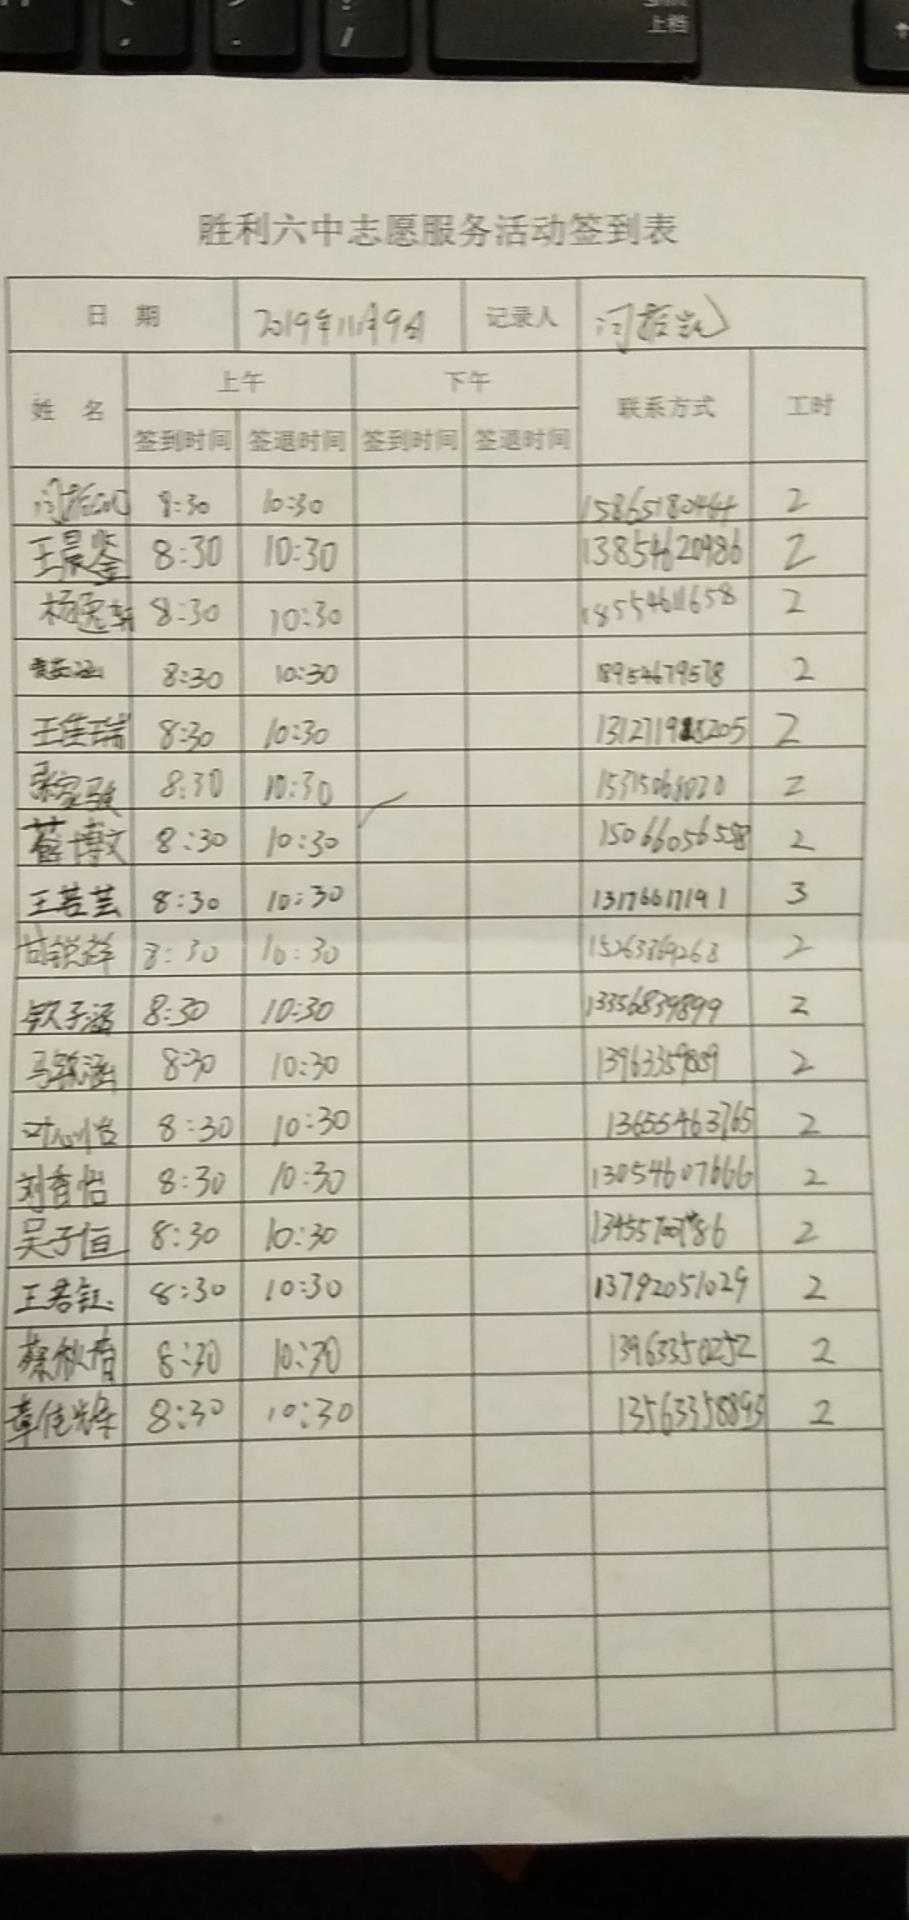 上档
胜利六中志愿服务活动签到表
日 期 2019年11月9日 记录人
姓 名 上午 下午 联系方式 工时
签到时间 签退时间 签到时间 签退时间
8:30 10:30 2
王晨鉴 8:30 10:30 13854620986 2
杨逸轩 8:30 10:30 18554611658 2
8:30 10:30 18954679578 2
王佳瑞 8:30 10:30 2
张家骏 8:30 10:30 2
博文 8:30 10:30 15066056558 2
王若芸 8:30 10:30 13176617191 3
8:30 10:30 15263869268 2
子涵 8:30 10:30 13356839899 2
马 涵 8:30 10:30 13963359889 2
8:30 10:30 13655463765 2
刘香怡 8:30 10:30 13054607666 2
吴子恒 8:30 10:30 2
王若钰 8:30 10:30 13792051029 2
蔡秋香 8:30 10:30 13963350252 2
章佳 8:30 10:30 13563358893 2